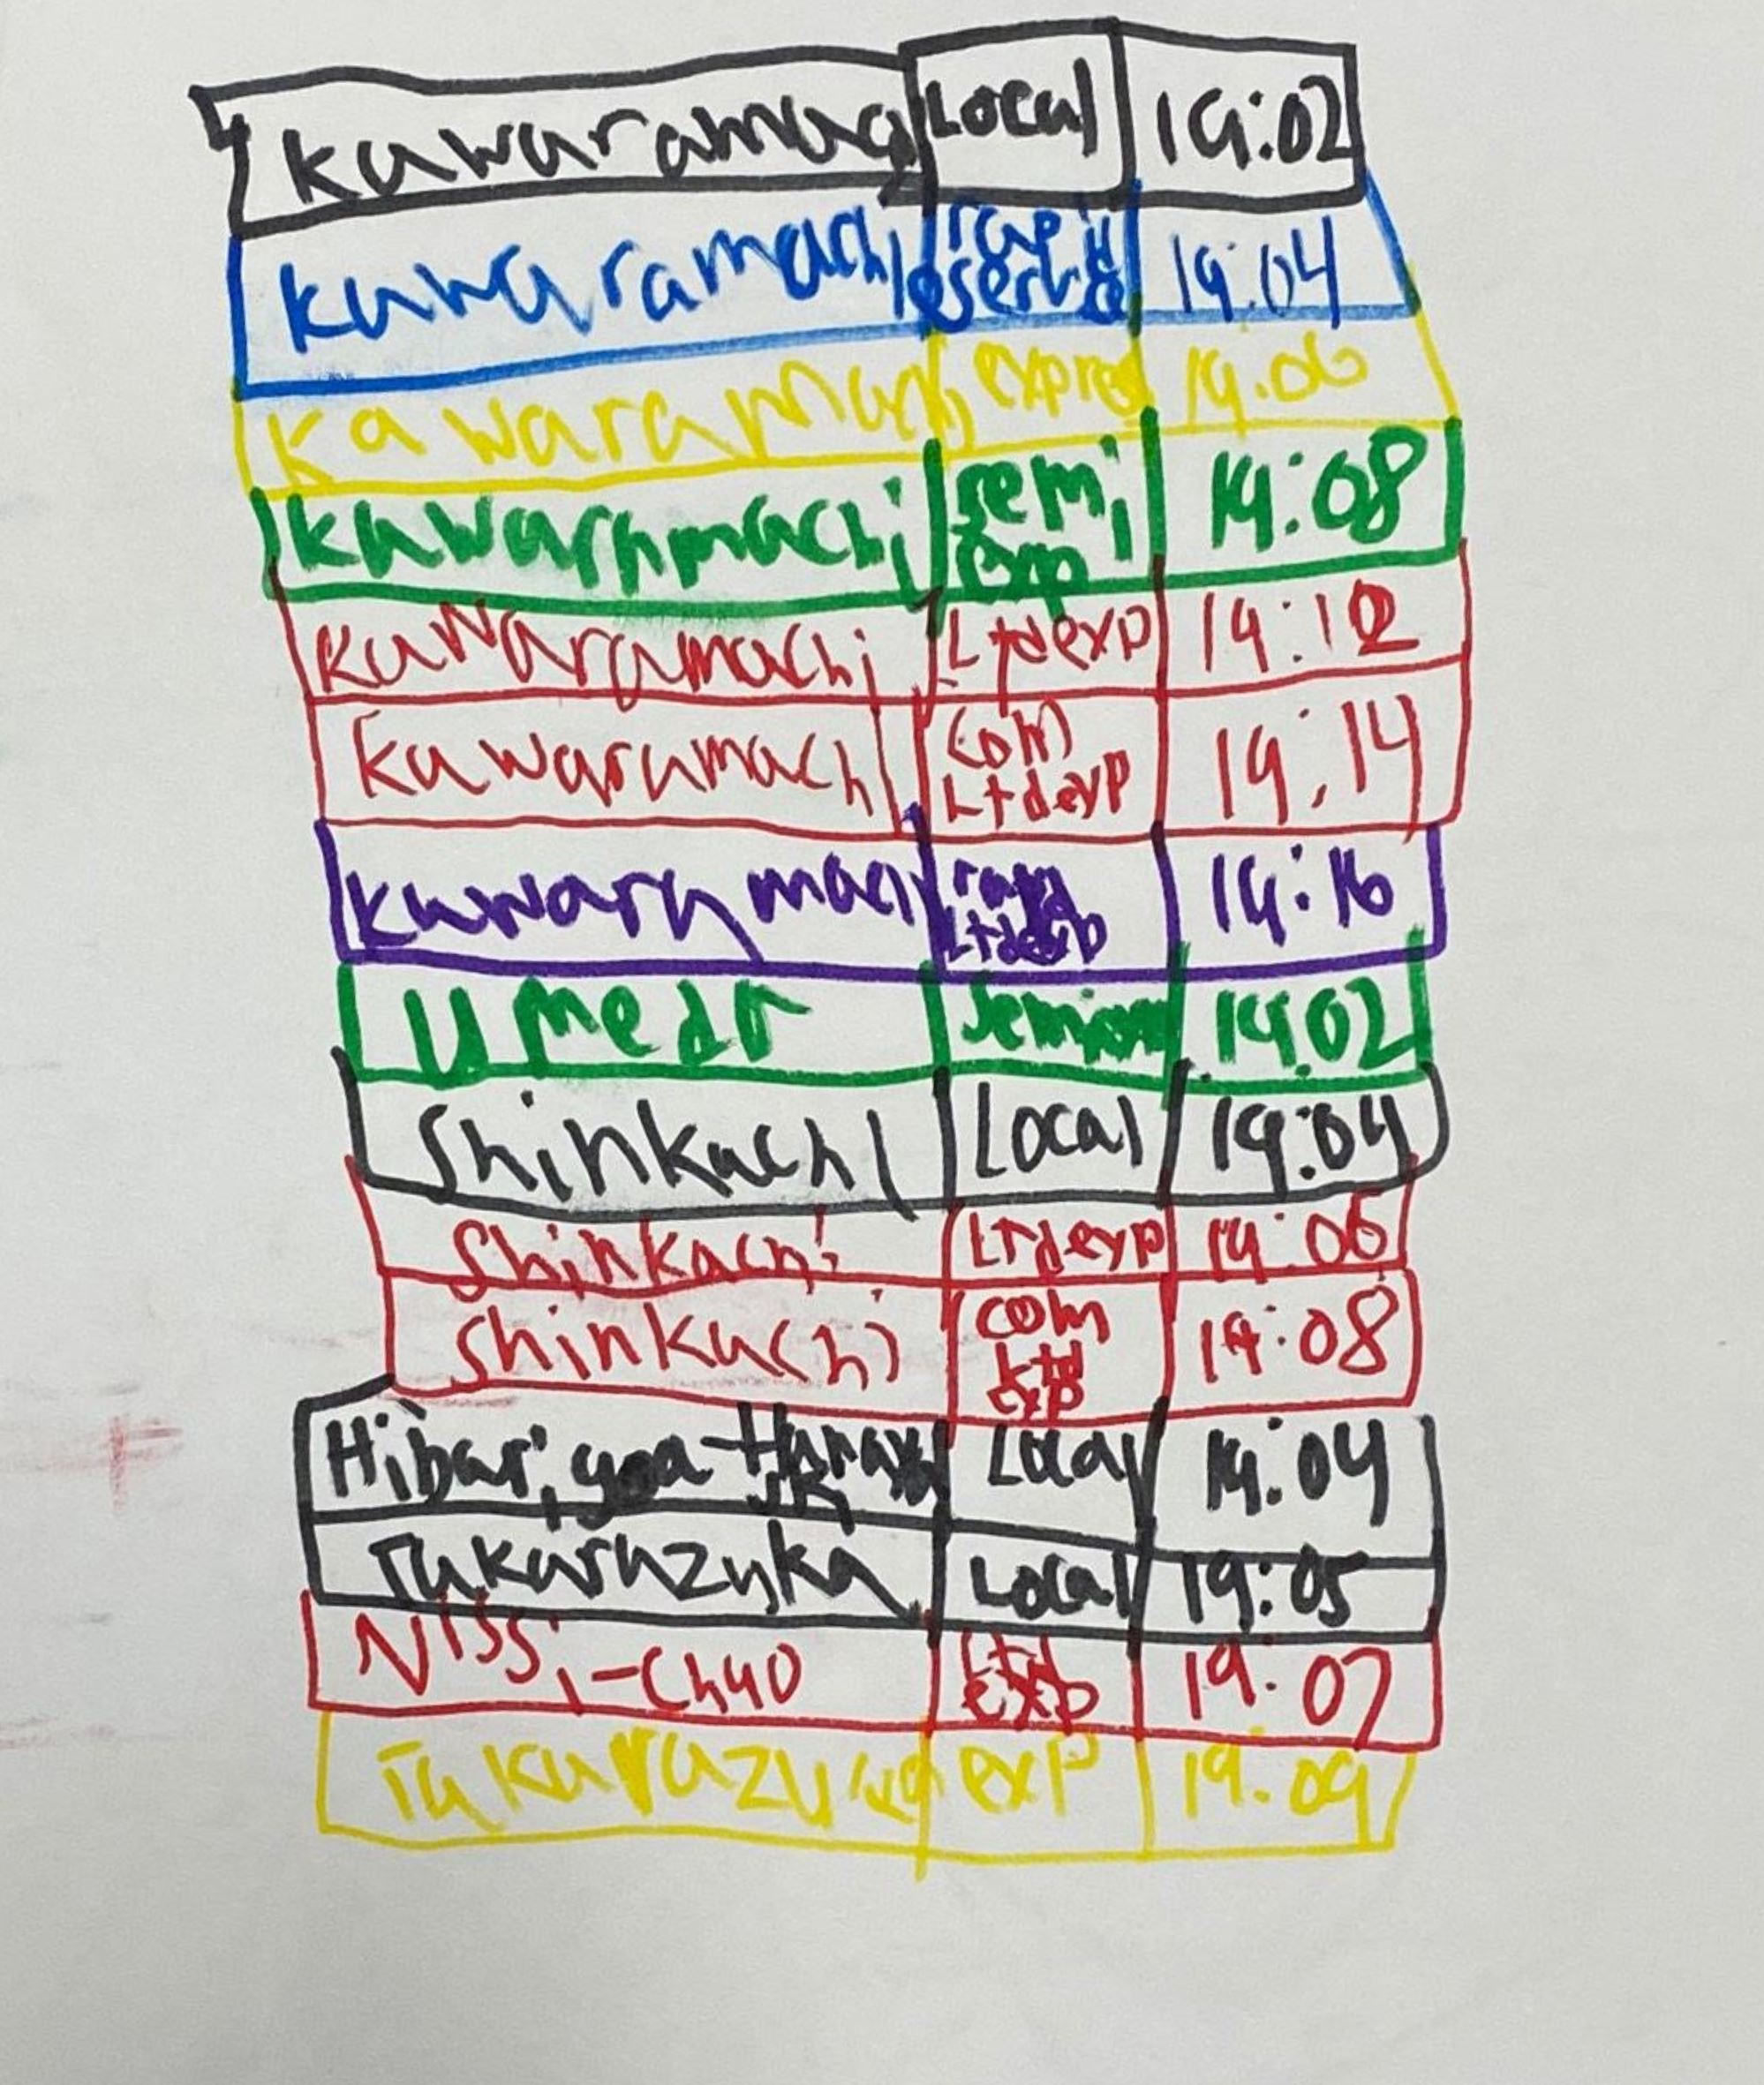 Kawaramaci Local 19:02
Kawaramachi rapid service 19:04
Kawaramachi expres 19:06
Kawaramachi semi exp 19:08
Kawaramachi Ltdexp 19:12
Kawaramachi com Ltdexp 19:14
Kawaramachi rapid Ltdexp 19:16
Umeda semiexp 19:02
Shinkachi Local 19:04
Shinkachi Ltdexp 19:06
Shinkachi com Ltd exp 19:08
Local 19:04
Takarazuka Local 19:05
Nissi-Chuo Ltd exp 19:07
Takarazuka exp 19:09